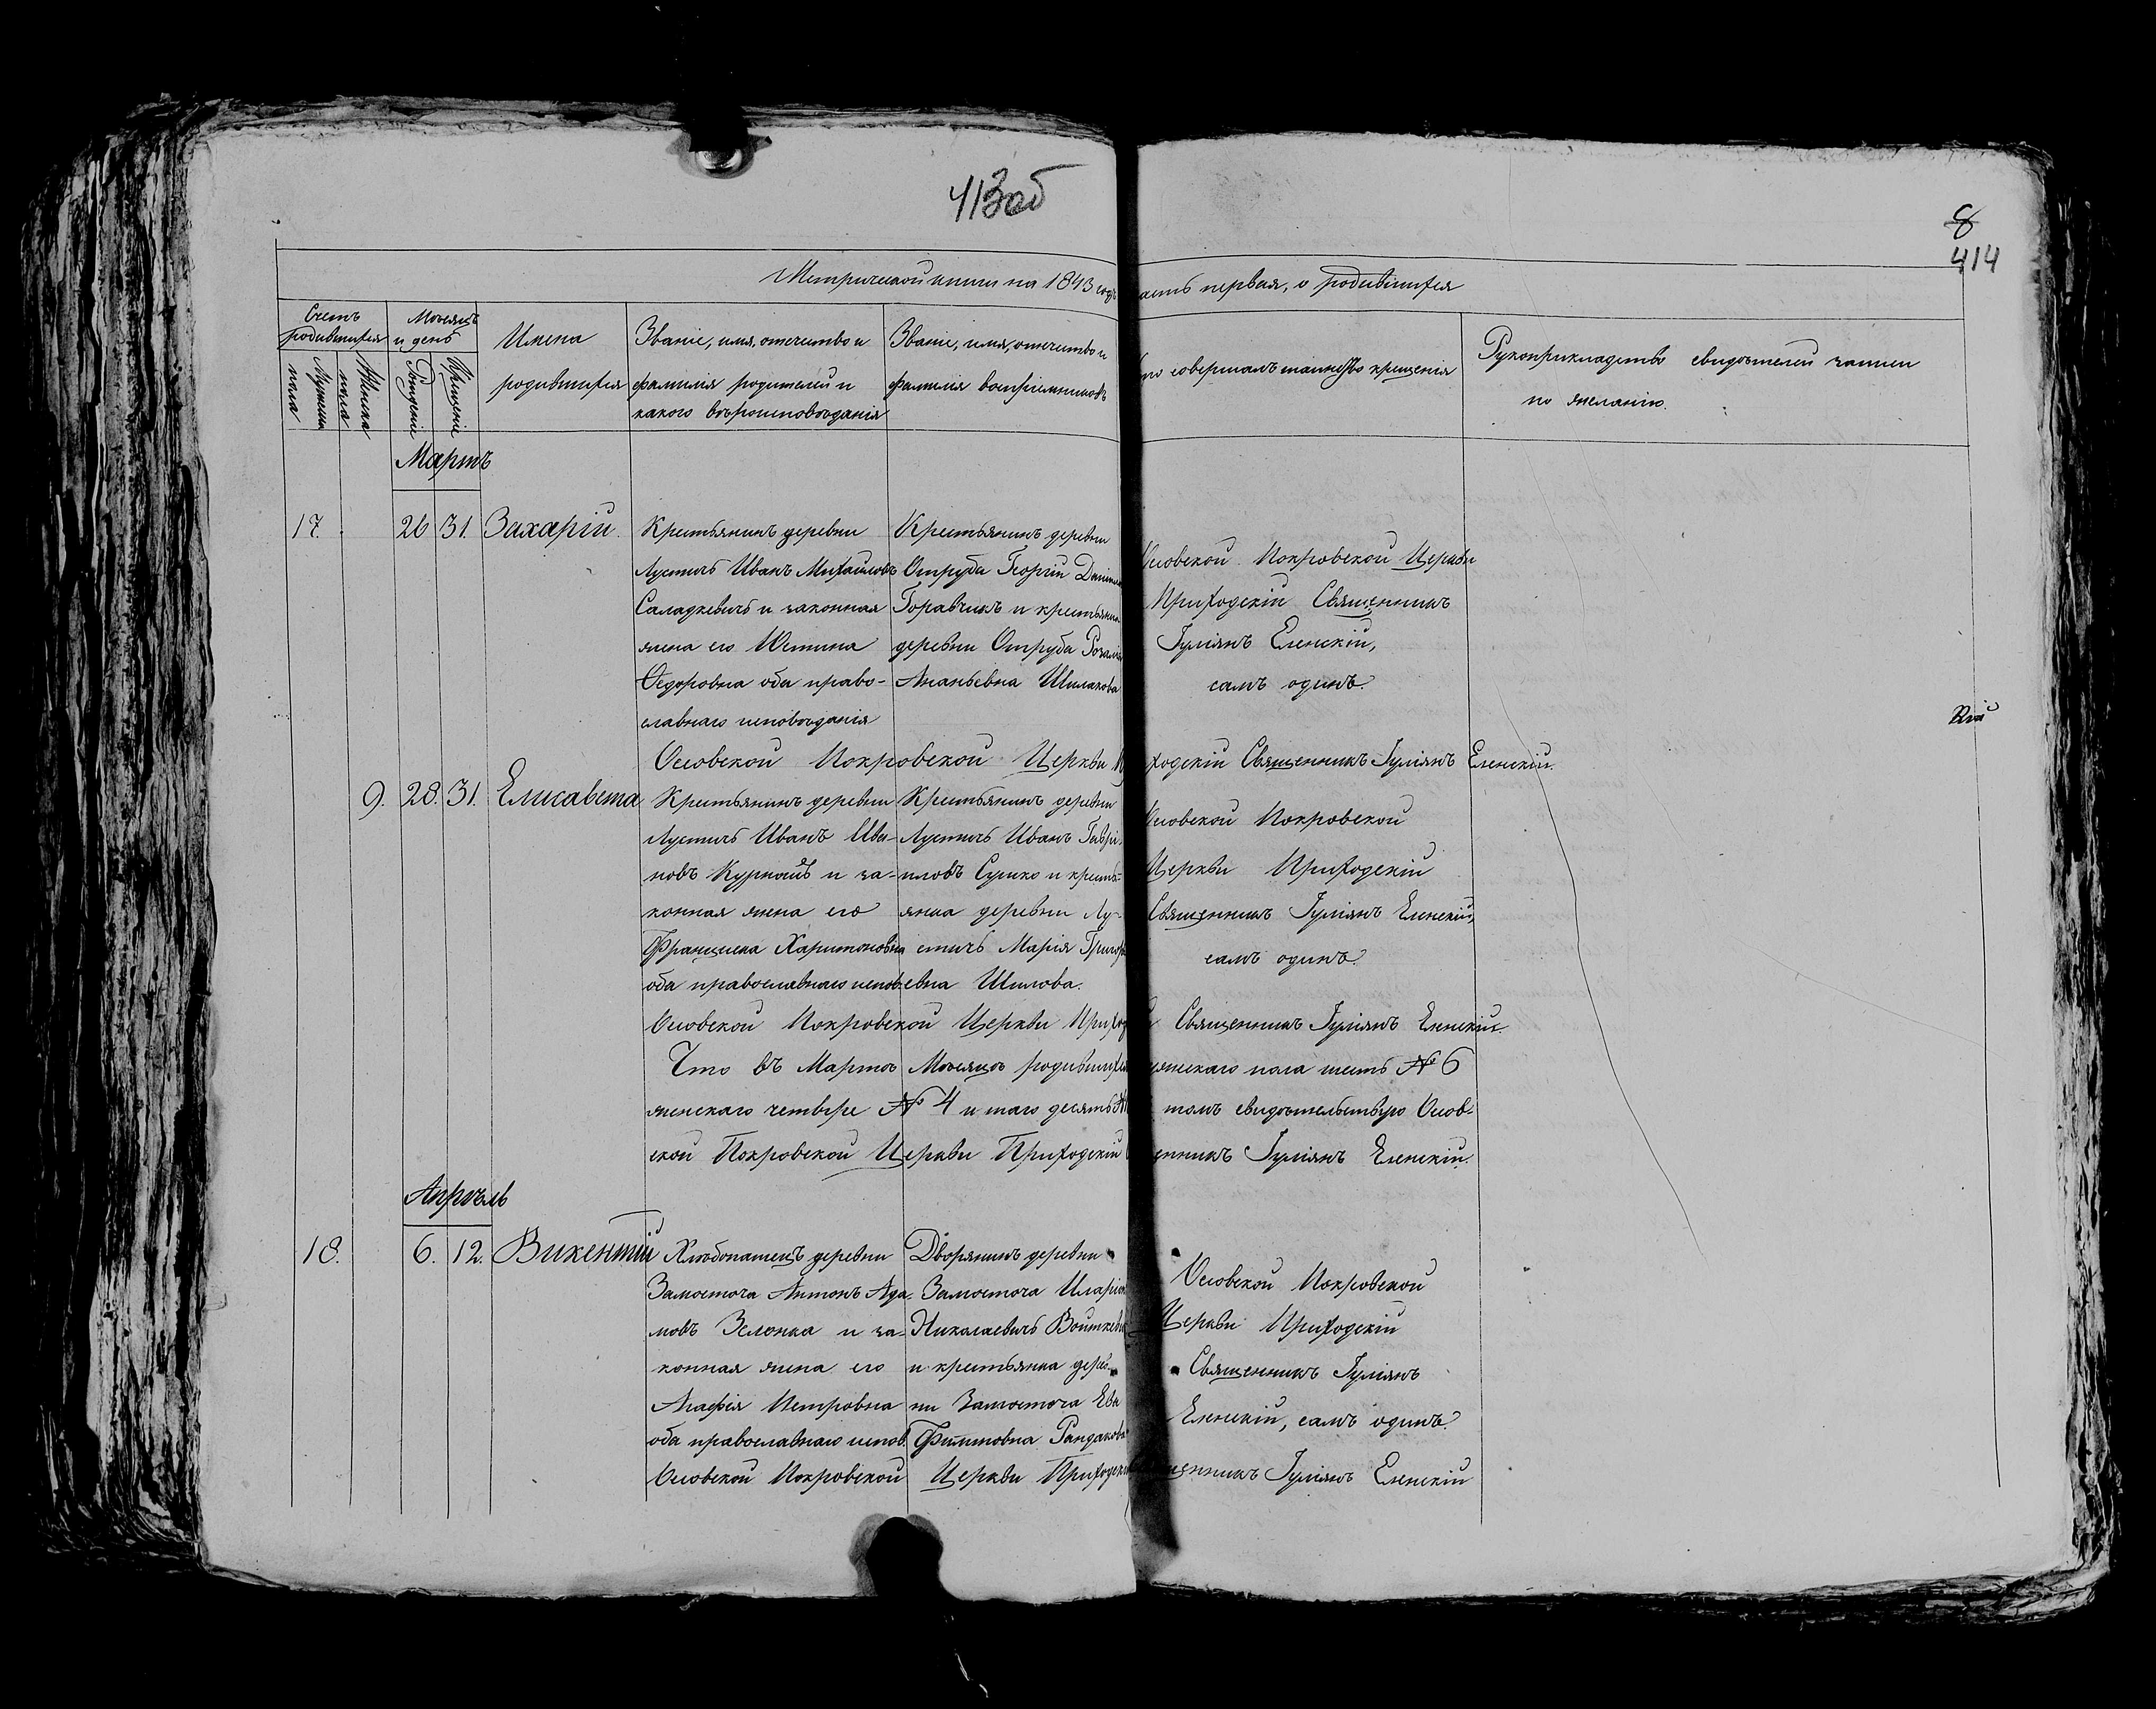 413об
8
414
Метрической книги на 1843 годъ
часть первая, о родившихся
Счетъ родившихся
Мужеска пола
Женска пола
Мѣсяцъ и день
Рожденіе
Крещеніе
Имена родившихся
Званіе, имя, отчество и
фамилія родителей и
какого вѣроисповѣданія
Званіе, имя, отчество и
фамилія воспріемниковъ
Кто совершалъ таинство крещенія
Рукоприкладство свидѣтелей записи
по желанію.
Мартъ
17. 26 31. Захарій.
Крестьянинъ деревни
Лустичь Иванъ Михайловъ
Саладкевичь и законная
жена его Устина
Ѳедоровна оба право-
славнаго исповѣданія
Крестьянинъ деревни
Отруба Георгій
Горавчикъ и крестьянка
деревни Отруба Розалія
Ананьевна Шилакова
Осовской Покровской Церкви
Приходскій Священникъ
Іуліянъ Еленскій,
самъ одинъ.
Осовской Покровской Церкви Приходскій Священникъ Іуліянъ Еленскій.
9. 28. 31. Елисавета
Крестьянинъ деревни
Лустичь Иванъ Ива-
новъ и за-
конная жена его
Францишка Харитоновна
оба православнаго испов.
Крестьянинъ деревни
Лустичь Иванъ Гаврі-
иловъ Сушко и кресть-
янка деревни Лу-
стичь Марія Григорь-
евна Шилова.
Осовской Покровской
Церкви Приходскій
Священникъ Іуліянъ Еленскій,
самъ одинъ.
Осовской Покровской Церкви Приходскій Священникъ Іуліянъ Еленскій.
Что въ Мартѣ Мѣсяцѣ родившихся мужескаго пола шесть № 6
женскаго четыре № 4 и того десять томъ свидѣтельствую Осов-
ской Покровской Церкви Приходскій Священникъ Іуліянъ Еленскій.
Апрѣль
18. 6. 12. Викентій
Хлѣбопашецъ деревни
Замосточа Антонъ Ада-
мовъ Зелонка и за-
конная жена его
Агафія Петровна
оба православнаго испов.
Дворянинъ деревни
Замосточа Иларіонъ
Николаевичь Войткевичь
и крестьянка дерев-
ни Замосточа Ева
Рандакова
Осовской Покровской
Церкви Приходскій
Священникъ Іуліянъ
Еленскій, самъ одинъ.
Осовской Покровской Церкви Приходскій Священникъ Іуліянъ Еленскій